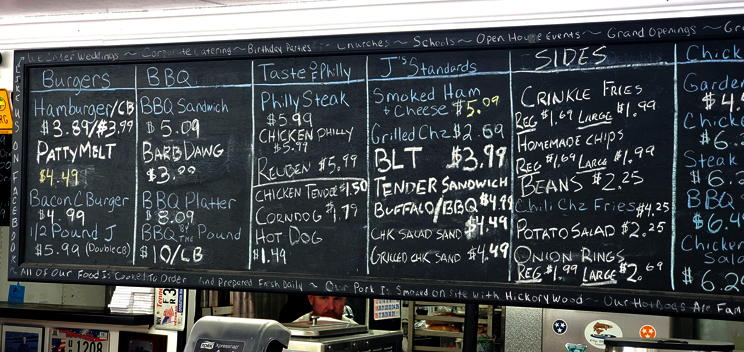 Weddings ~ Corporate Catering ~ Birthday Parties ~ Churches ~ Schools ~ Open House Events ~ Grand Openings ~
LIKE US ON FACEB
Burgers
Hamburger/CB
$3.89/$3.99
PATTY MELT
$4.49
BACON C BURGER
$4.99
1/2 POUND J
$5.99 (DOUBLE CB)
BBQ
BBQ SANDWICH
$5.09
BARB DAWG
$3.99
BBQ PLATTER
$8.09
BBQ BY THE POUND
$10/LB
TASTE OF PHILLY
PHILLY STEAK
$5.99
CHICKEN PHILLY
$5.99
REUBEN $5.99
CHICKEN TENDER $1.50
CORNDOG $1.79
HOT DOG
$1.49
J'S STANDARDS
SMOKED HAM
+ CHEESE $5.09
Grilled Chz $2.69
BLT $3.99
TENDER SANDWICH
BUFFALO/BBQ $4.99
CHK SALAD SAND $4.49
GRILLED CHK SAND $4.49
SIDES
CRINKLE FRIES
REG $1.69 LARGE $1.99
HOMEMADE CHIPS
REG $1.69 LARGE $1.99
BEANS $2.25
Chili Chz Fries $4.25
POTATO SALAD $2.25
ONION RINGS
REG $1.99 LARGE $2.69
Chick
Garden
$4.
Chick
$6.
Steak
$6.
BBQ
$6.4
Chicken
Sala
$6.2
ALL OF OUR FOOD IS COOKED TO ORDER AND PREPARED FRESH DAILY ~ OUR PORK IS SMOKED ON SITE WITH HICKORY WOOD ~ OUR HOTDOGS ARE FAM